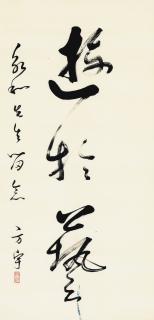 遊於藝
永和先生留念
方宇